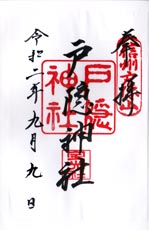 奉拝
戸隠神社
戸隠
神社
令和二年九月九日